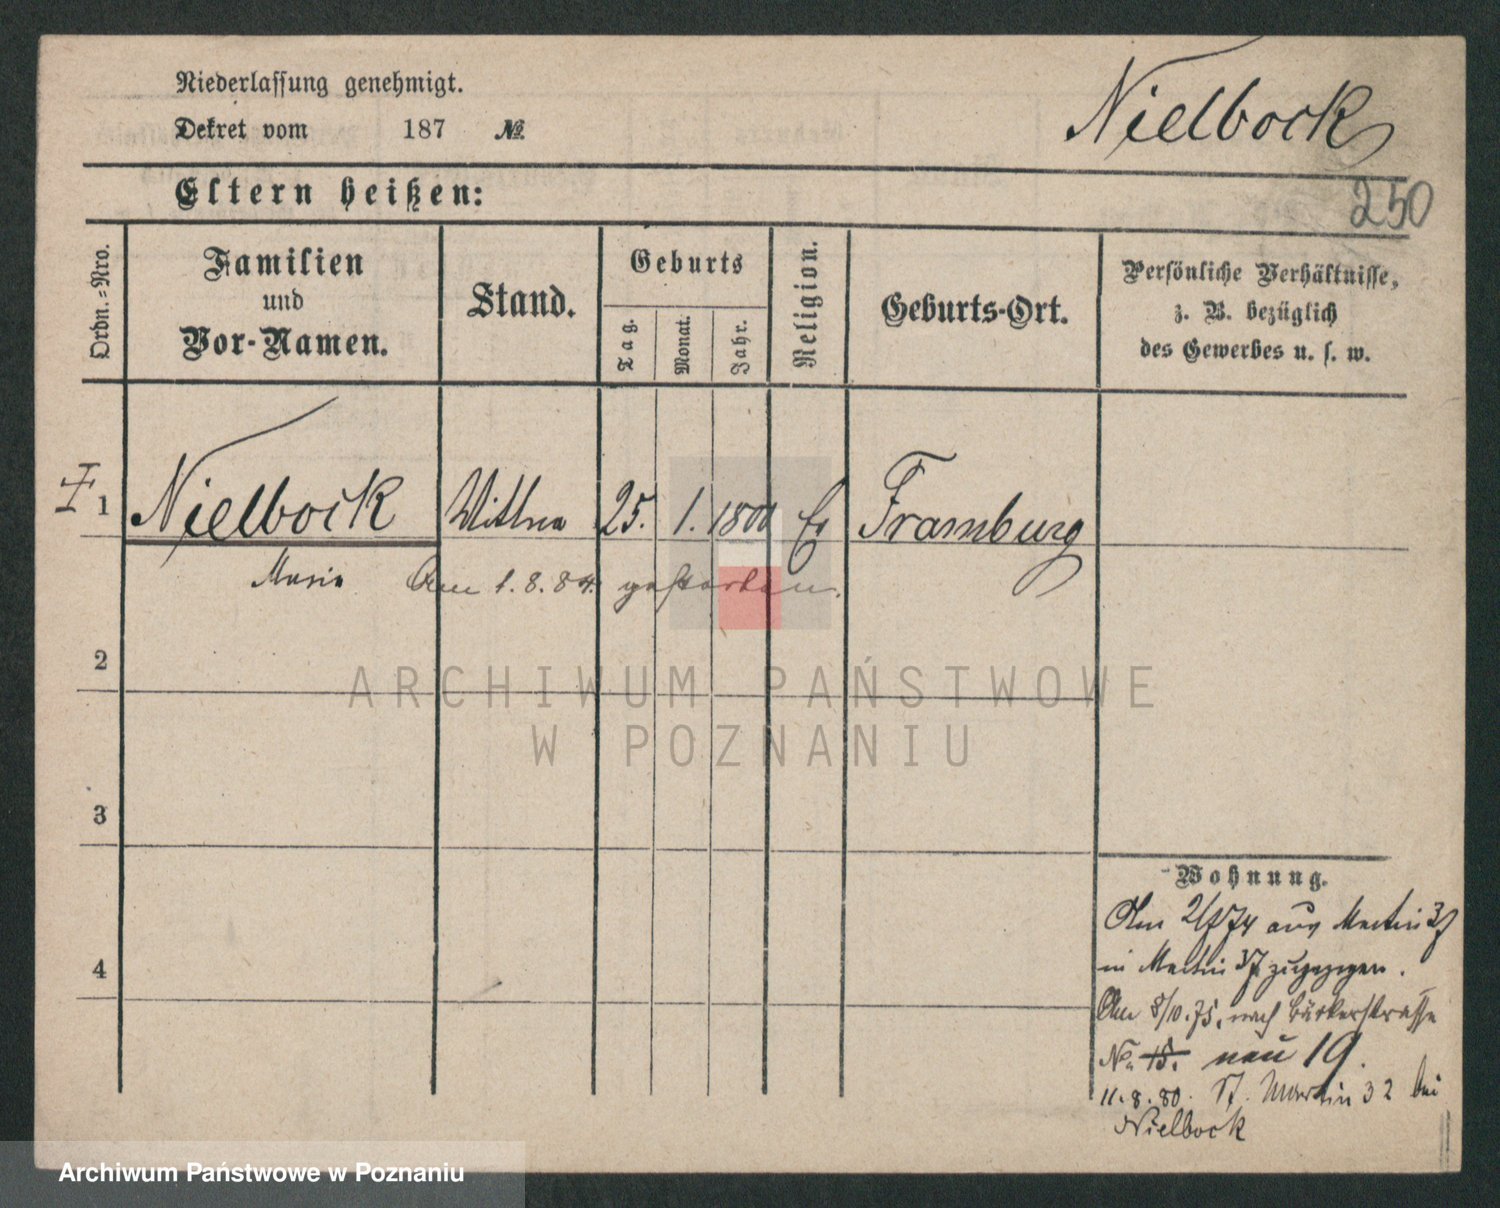 Niederlassung genehmigt.
Dekret vom 187 №
Nielbock
250
Eltern heißen:
Ordn.-Nro.
Familien
und
Vor-Namen.
Stand.
Geburts
Tag.
Monat.
Jahr.
Religion.
Geburts-Ort.
Persönliche Verhältnisse,
z. B. bezüglich
des Gewerbes u. s. w.
1
Nielbock 25. 1. 1800 Ev
Am 1.8.84. gestorben.
2
ARCHIWUM PAŃSTWOWE
W POZNANIU
3
Wohnung.
Am 2/7 74 aus Martin 37
in Martin 37 zugezogen.
Am 8/10.75. nach Bäckerstrasse
No. 15. neu 19.
11.8.80. St. Martin 32 bei
Nielbock
4
Archiwum Państwowe w Poznaniu